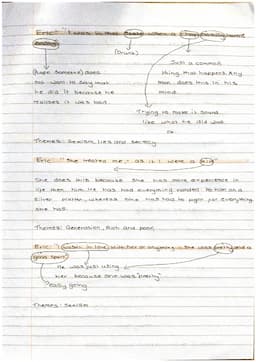 Eric: "I was in that state when a chap easily turns nasty"
(Drunk)
(Rape someone) does not want to say that he did it because he realises it was bad.
Just a common thing that happens. Any man does this in his mind.
Trying to make it sound like what he did was ok
Themes: Sexism, lies and secrecy
Eric: "She treated me - as if I were a kid"
She does this because she has more experience in life then him. He has had everything handed to him on a silver platter, whereas she has had to fight for everything she has.
Themes: Generation, Rich and poor,
Eric: "I wasn't in love with her or anything - she was pretty and a good sport"
He was just using her because she was "pretty"
"easy going
Themes: Sexism